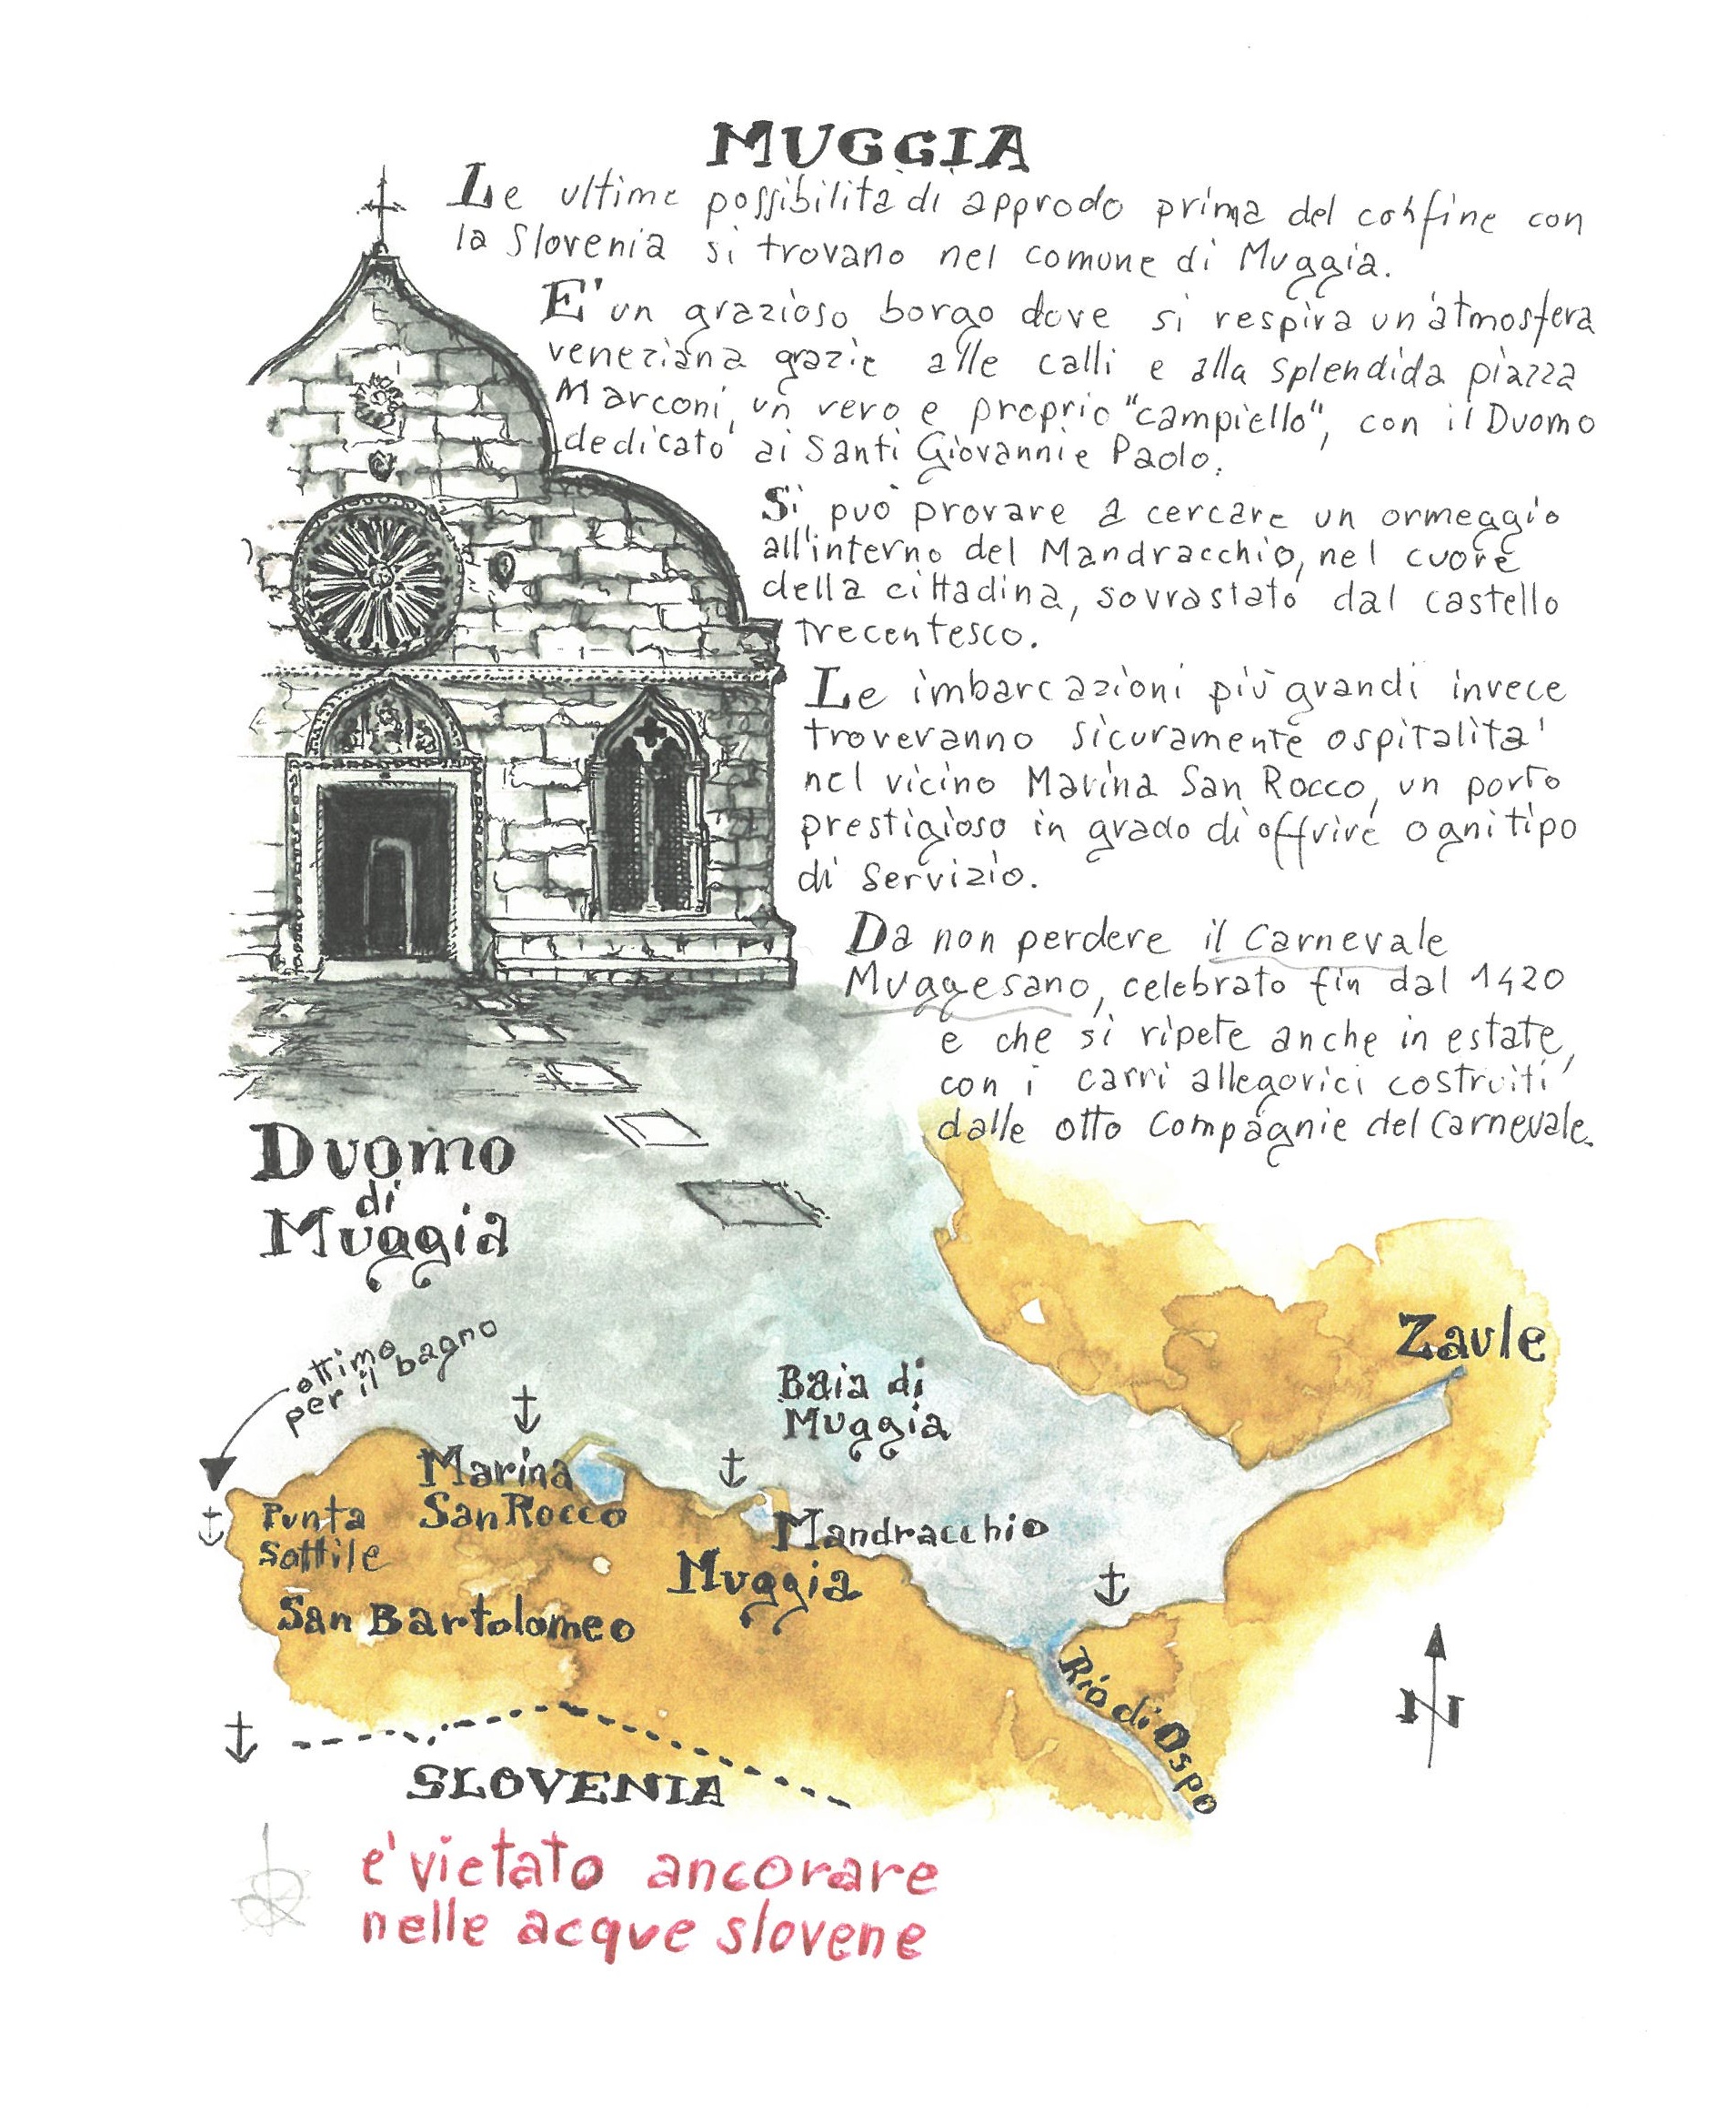 MUGGIA
Le ultime possibilità di approdo prima del confine con
la Slovenia si trovano nel comune di Muggia.
E' un grazioso borgo dove si respira un'atmosfera
veneziana grazie alle calli e alla splendida piazza
Marconi, un vero e proprio "campiello", con il Duomo
dedicato ai Santi Giovanni e Paolo.
Si può provare a cercare un ormeggio
all'interno del Mandracchio, nel cuore
della cittadina, sovrastato dal castello
trecentesco.
Le imbarcazioni più grandi invece
troveranno sicuramente ospitalita'
nel vicino Marina San Rocco, un porto
prestigioso in grado di offrire ogni tipo
di servizio.
Da non perdere il Carnevale
Muggesano, celebrato fin dal 1420
e che si ripete anche in estate,
con i carri allegorici costruiti
dalle otto Compagnie del Carnevale.
Duomo
di
Muggia
ottimo
per il bagno
Zaule
Baia di
Muggia
Marina
San Rocco
Punta
Sottile
Mandracchio
Muggia
San Bartolomeo
Rio di Ospo
N
SLOVENIA
e' vietato ancorare
nelle acque slovene